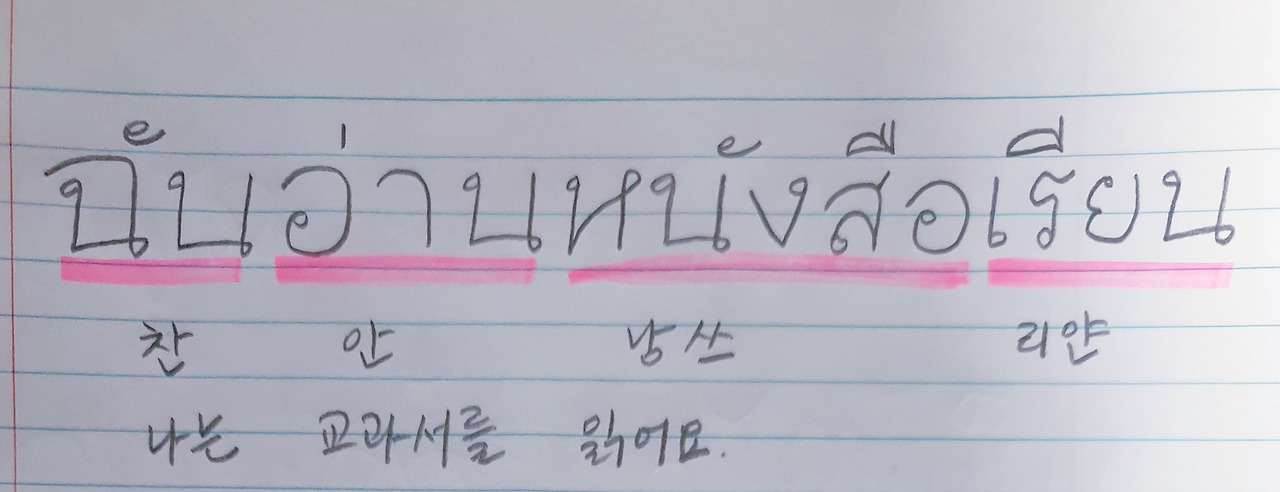 ฉันอ่านหนังสือเรียน
찬 안 낭쓰 리얀
나는 교과서를 읽어요.